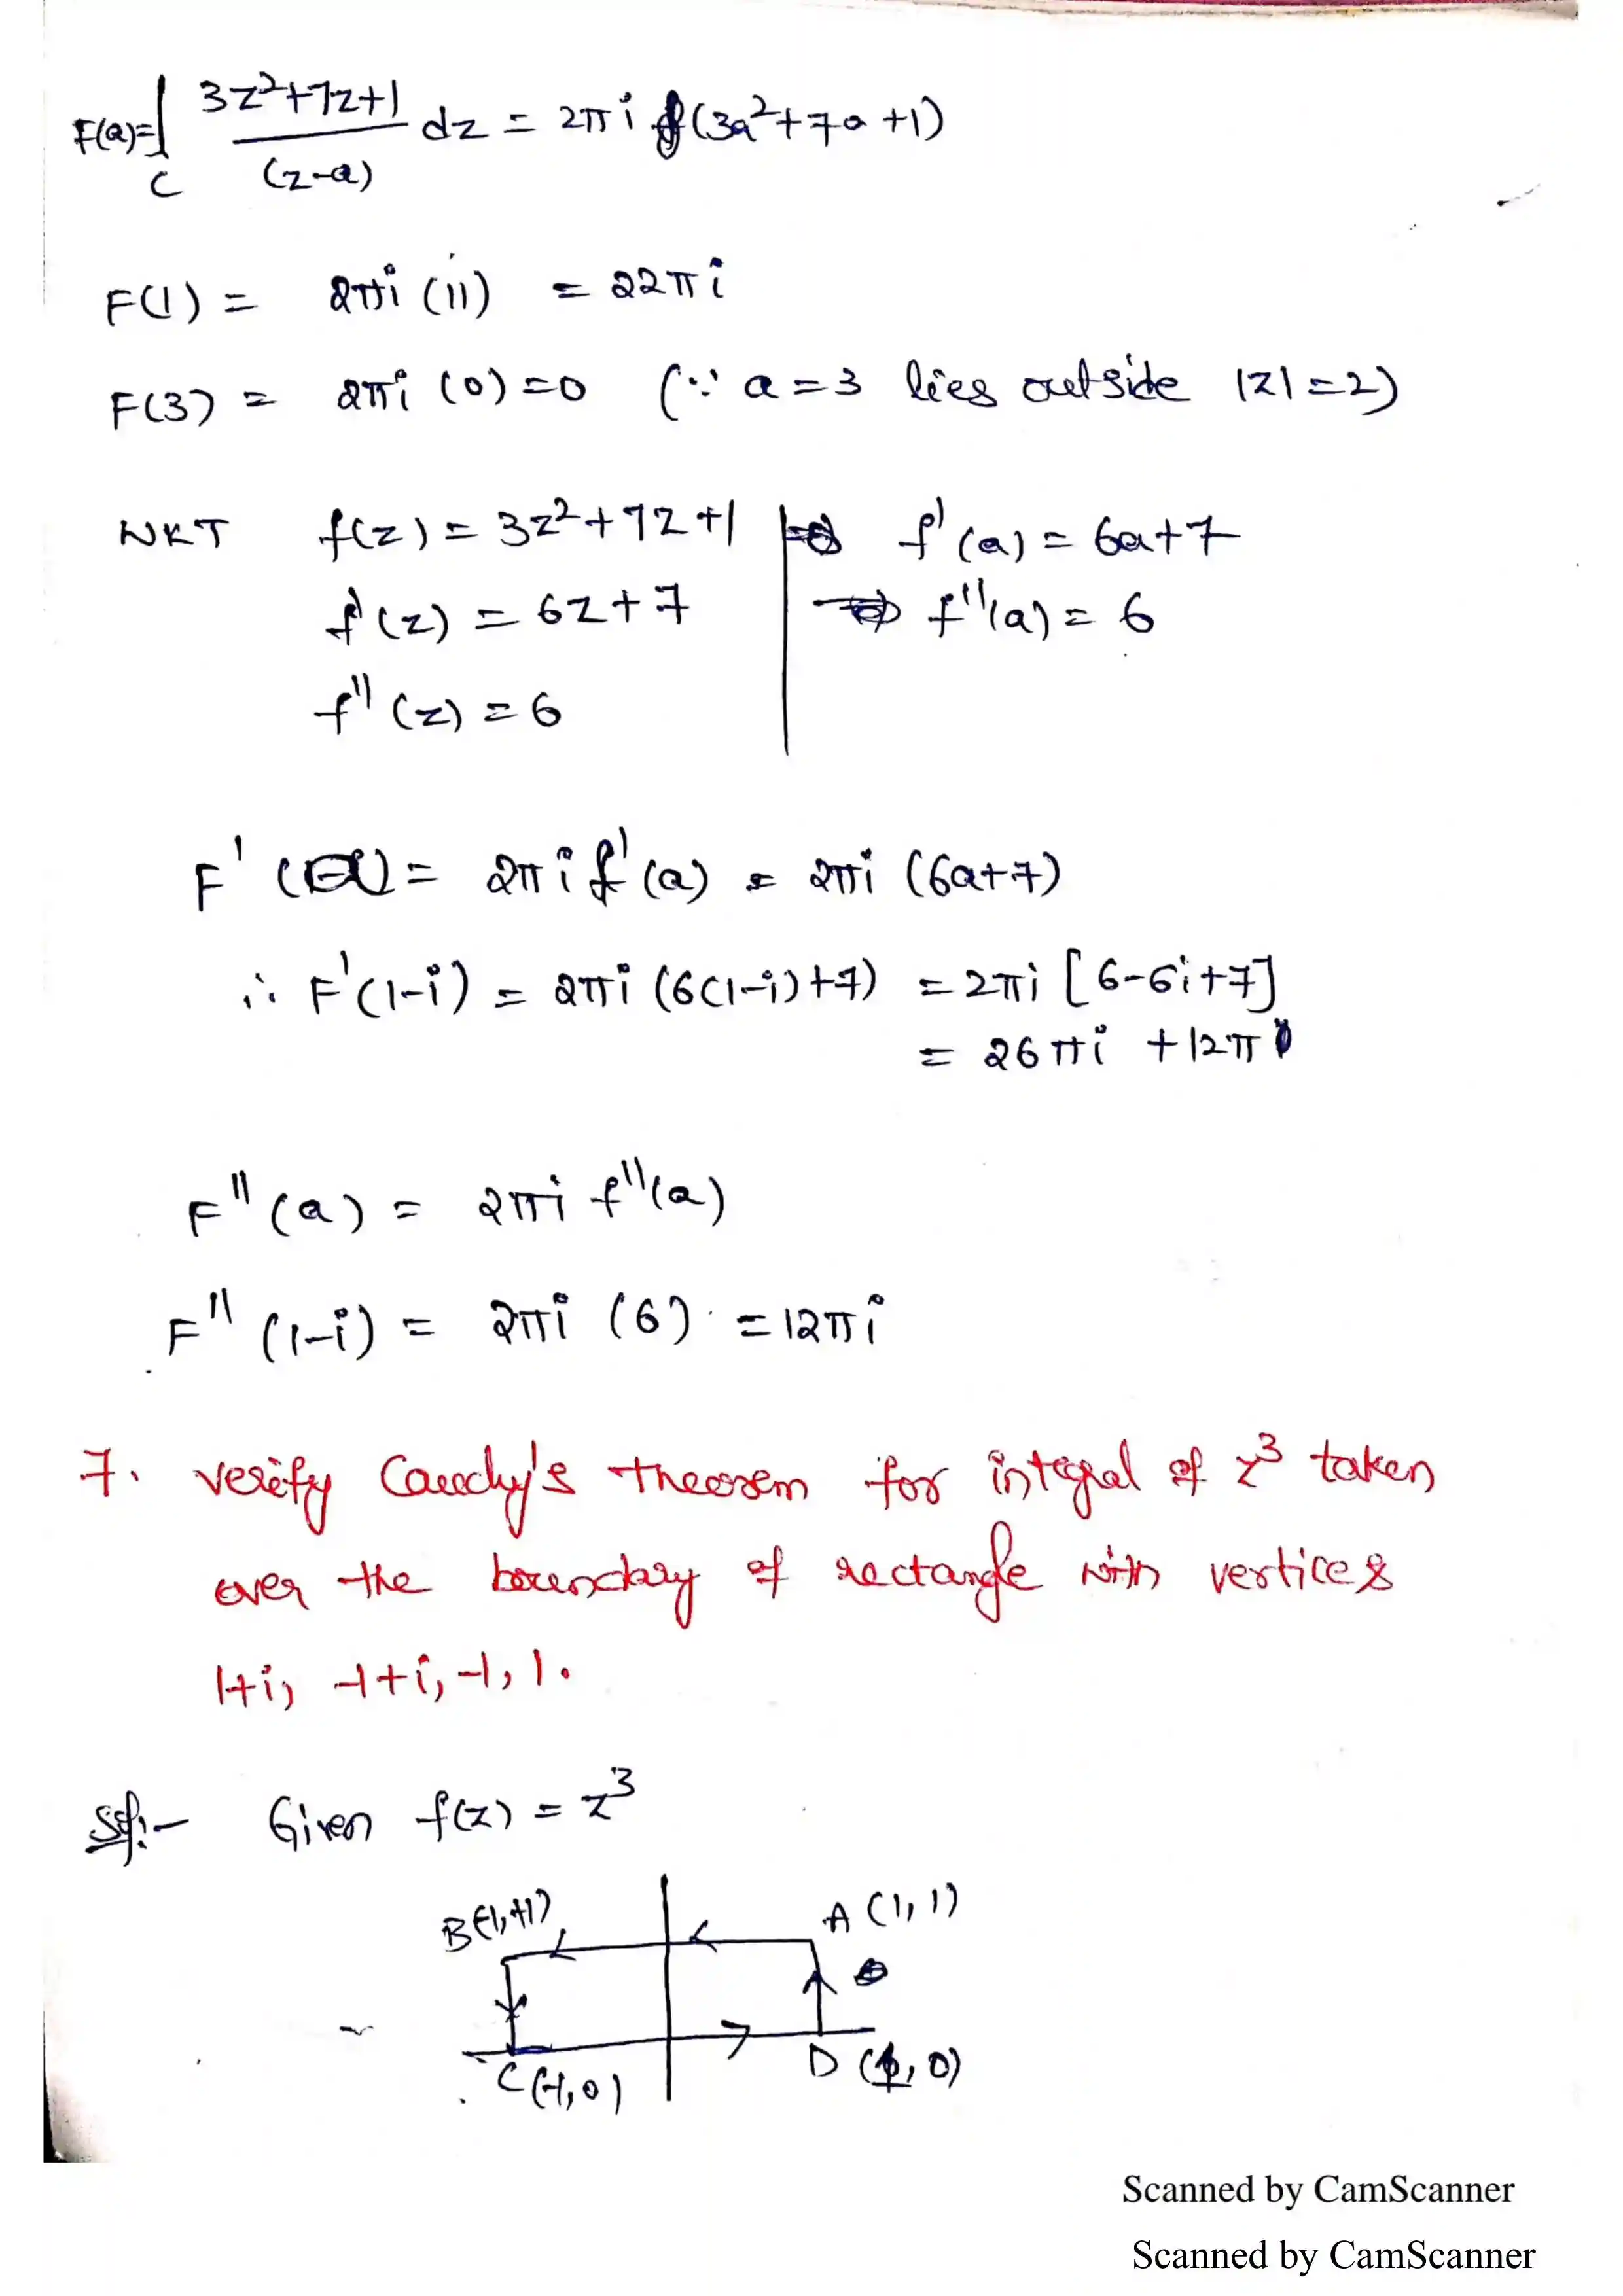 F(a)=∫_C (3z²+7z+1)/(z-a) dz = 2πi (3a²+7a+1)
F(1) = 2πi (11) = 22πi
F(3) = 2πi (0)=0 (∵ a=3 lies outside |z|=2)
WKT f(z) = 3z²+7z+1 f'(a) = 6a+7
f'(z) = 6z+7 f''(a) = 6
f''(z) = 6
F'(a) = 2πi f'(a) = 2πi (6a+7)
∴ F'(1-i) = 2πi (6(1-i)+7) = 2πi [6-6i+7]
= 26πi +12π
F''(a) = 2πi f''(a)
F''(1-i) = 2πi (6) = 12πi
7. Verify Cauchy's theorem for integral of z³ taken
over the boundary of rectangle with vertices
1+i, -1+i, -1, 1.
Sol:- Given f(z) = z³
B(-1,+1) A(1,1)
C(-1,0) D(1,0)
Scanned by CamScanner
Scanned by CamScanner